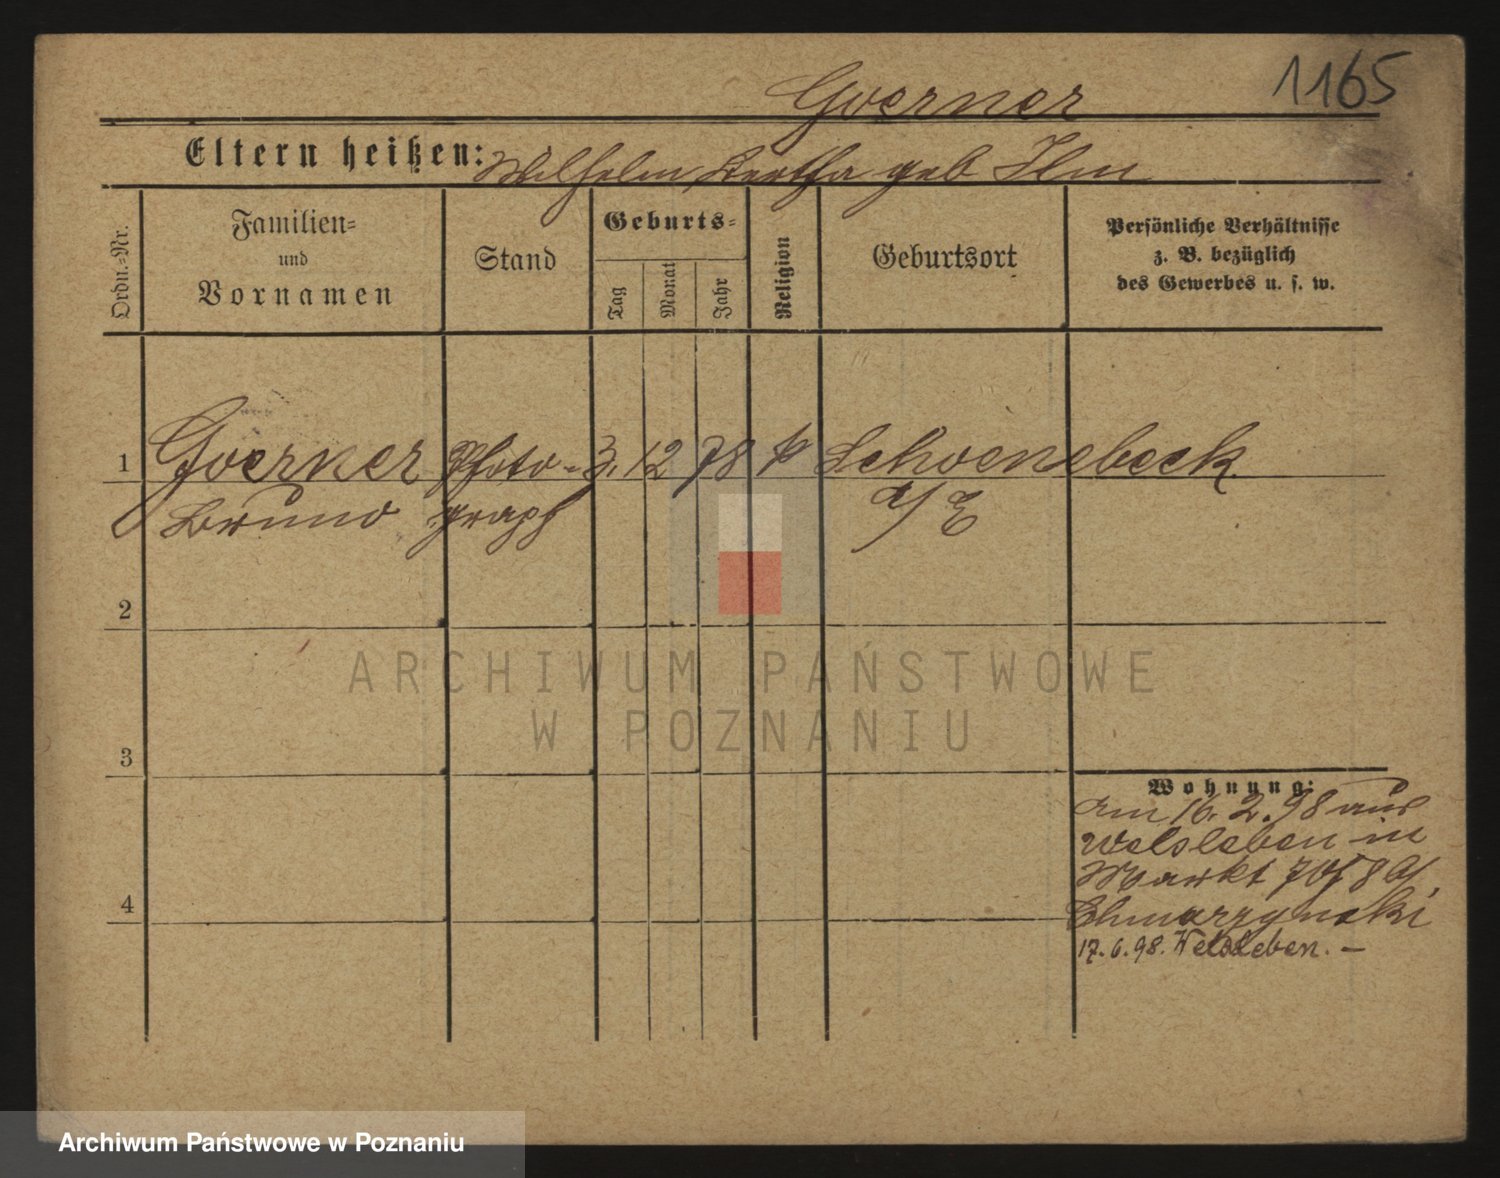 1165
Goerner
Eltern heißen: Wilhelm Bertha geb Ilm
Ordn.-Nr.
Familien-
und
Vornamen
Stand
Geburts-
Tag
Monat
Jahr
Religion
Geburtsort
Persönliche Verhältnisse
z. B. bezüglich
des Gewerbes u. s. w.
1 Goerner Photo- 3. 12 78 Schoenebeck
Bruno graph a/E
2
3
4
Wohnung:
am 16.2.98 aus
Welsleben in
Markt
17.6.98. Welsleben. —
ARCHIWUM PAŃSTWOWE
W POZNANIU
Archiwum Państwowe w Poznaniu